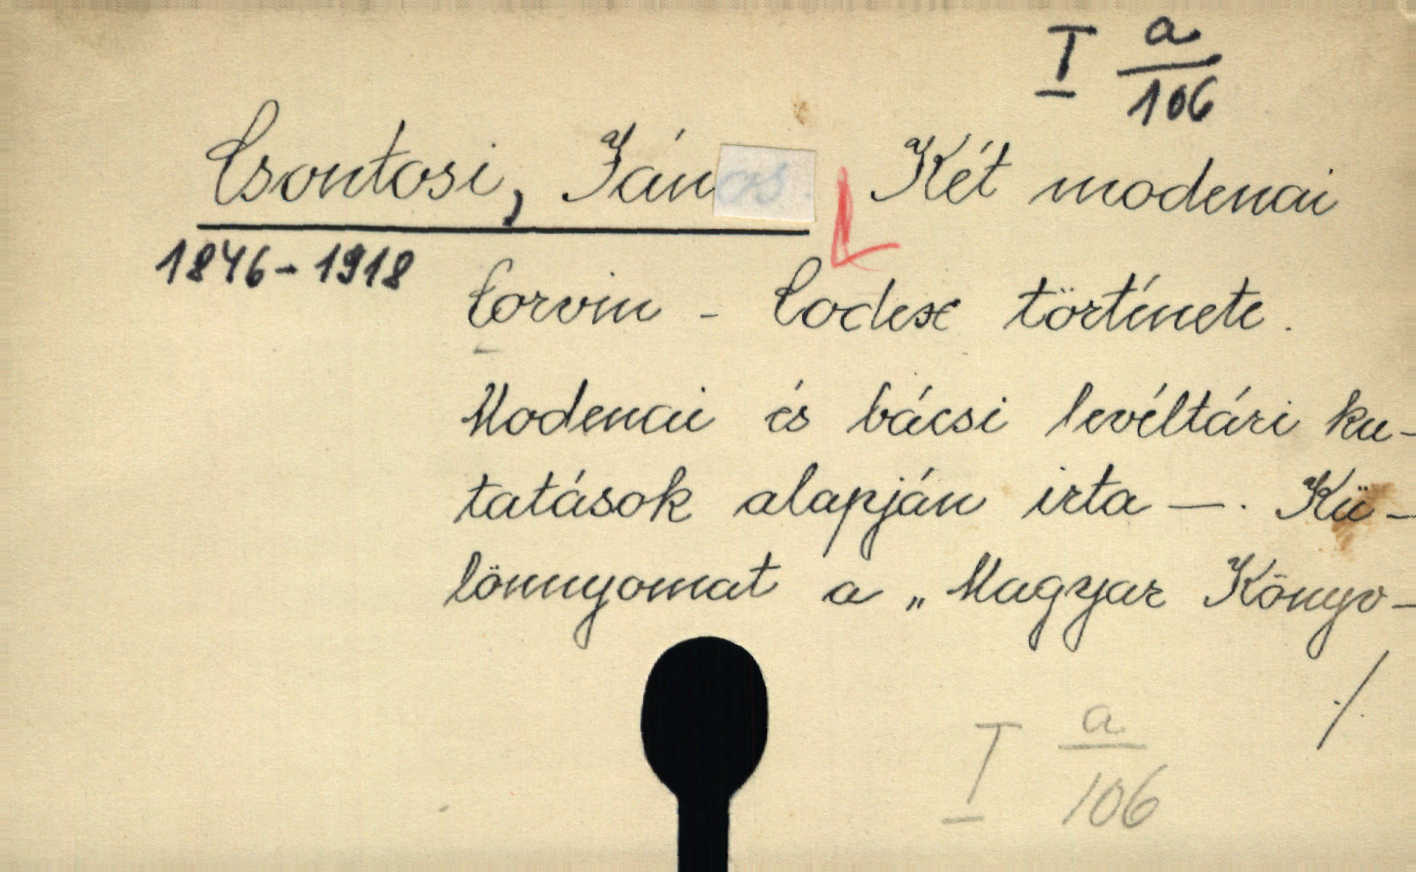 I a/106
Csontosi, János. Két modenai
1846-1918
Corvin - Codex története.
Modenai és bácsi levéltári ku-
tatások alapján irta —. Kü-
lönnyomat a „Magyar Könyv-
./.
I a/106